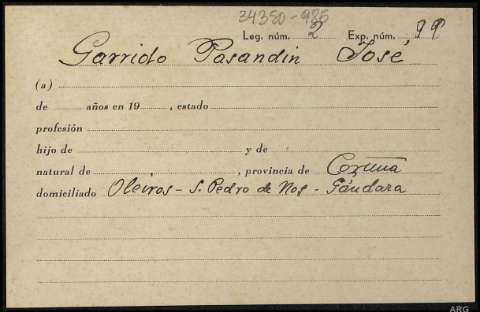 34350-985
Leg. núm. 2 Exp. núm. 99
Garrido Pasandin José
(a)
de años en 19 , estado
profesión
hijo de y de
natural de , provincia de Coruña
domiciliado Oleiros - S. Pedro de Nos - Gándara
ARG